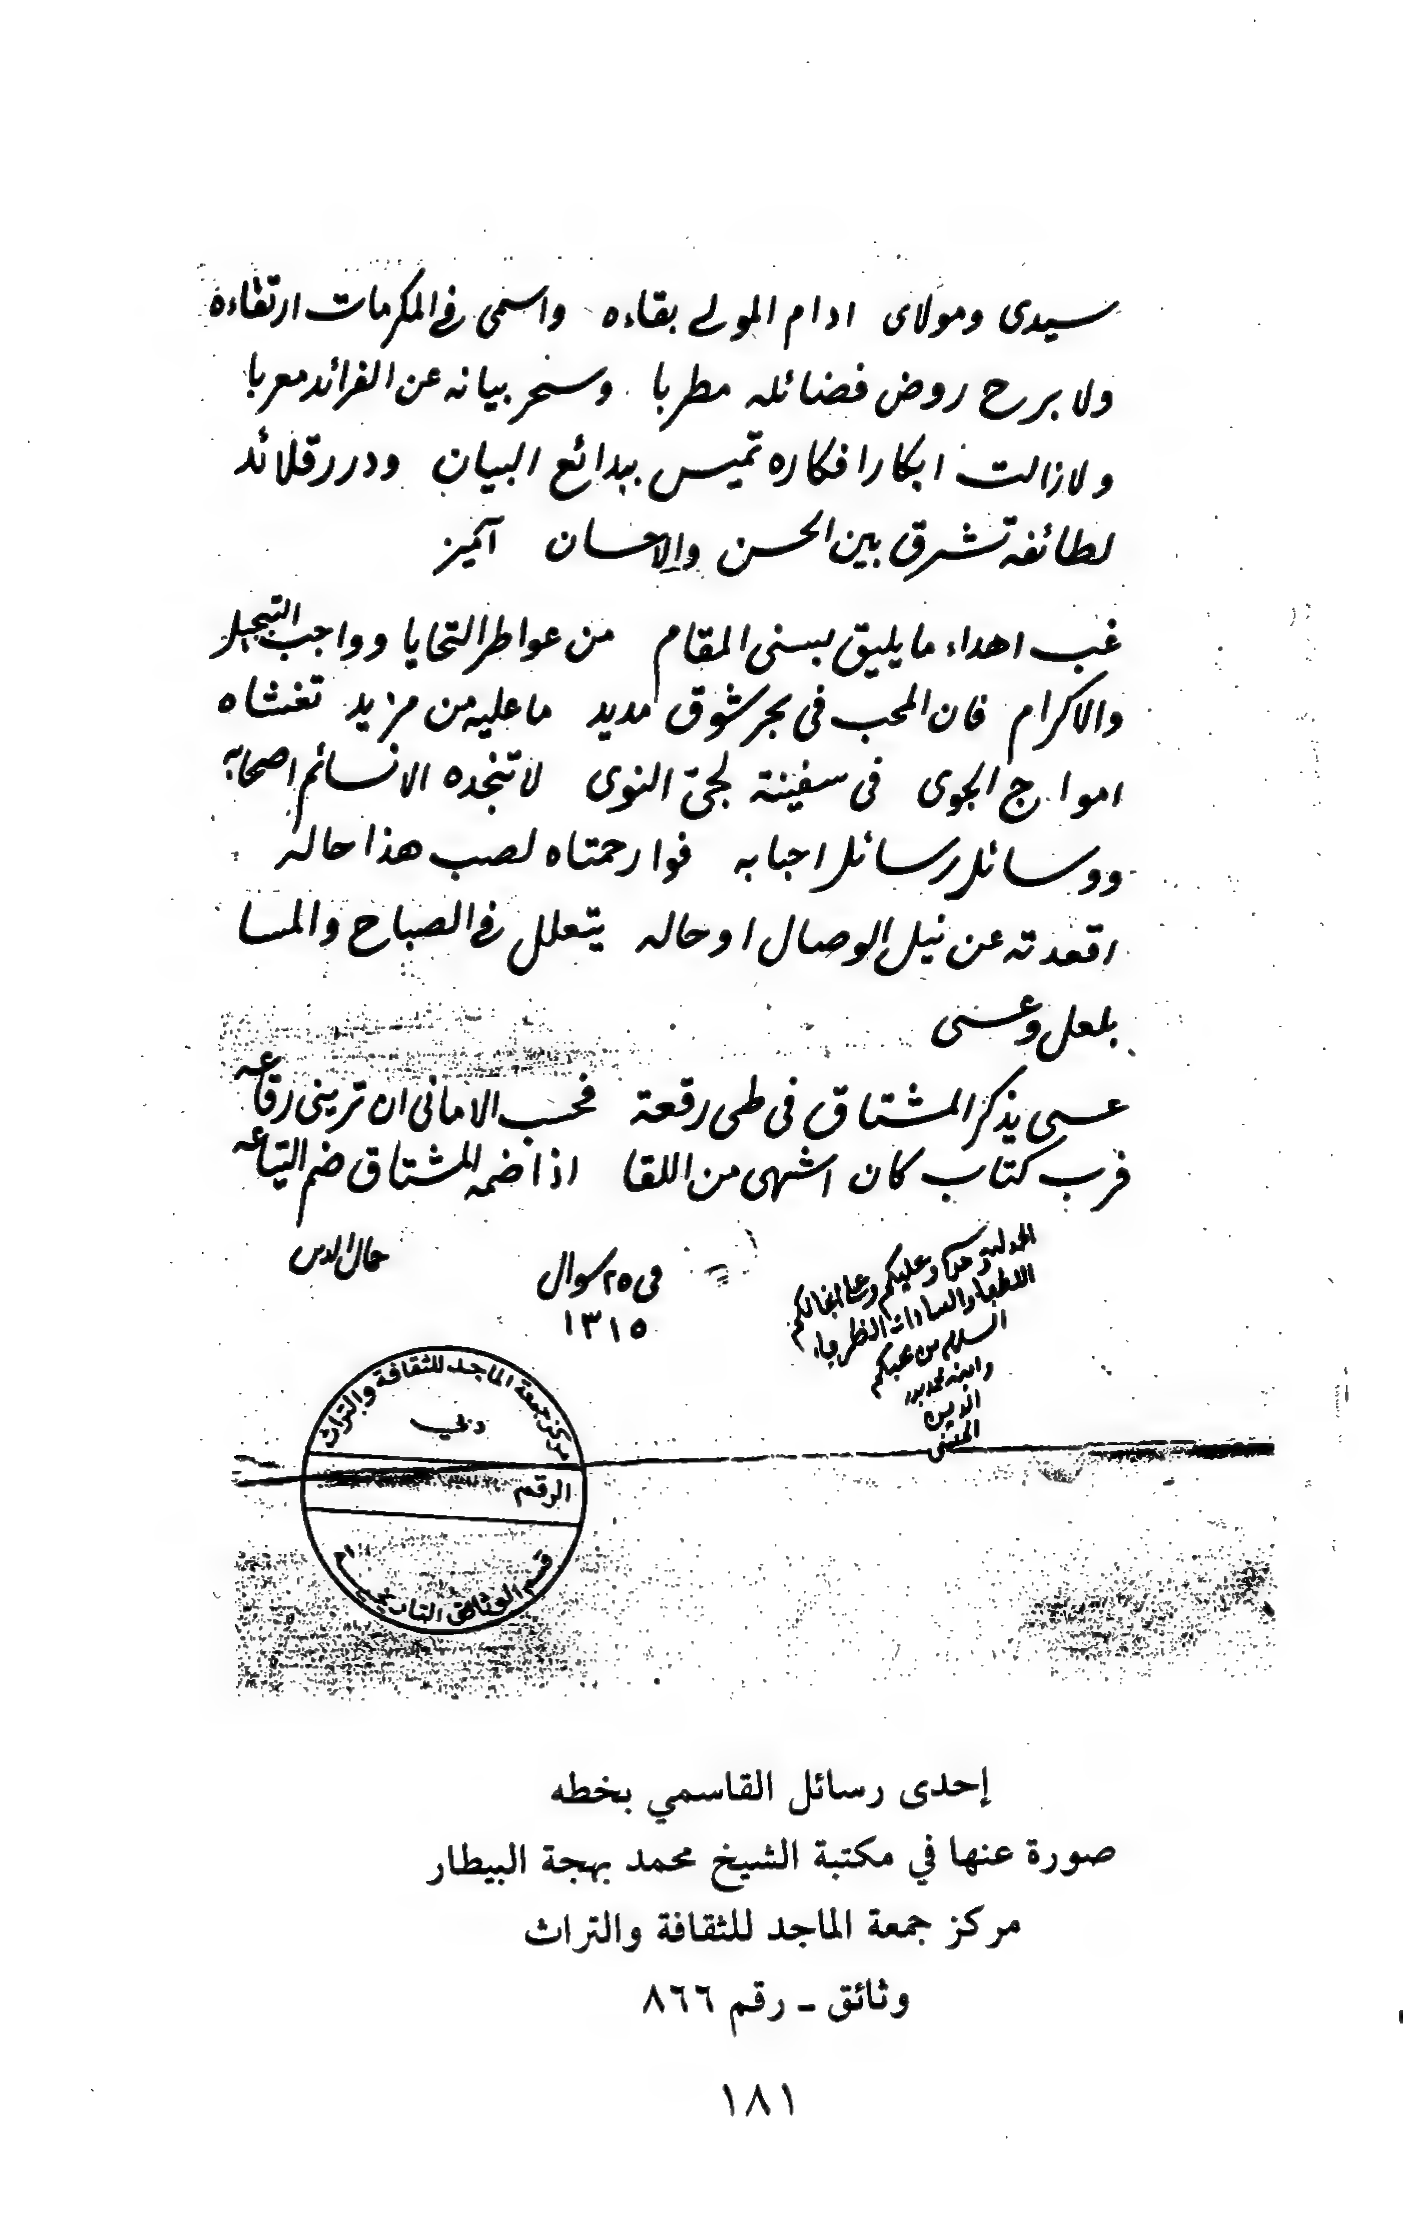 سيدى ومولاى ادام المولى بقاءه واسمى فى المكرمات ارتقاءه
ولا برح روض فضائله مطربا وسحر بيانه عن الفرائد معربا
ولا زالت ابكار افكاره تميس ببدائع البيان ودرر قلائد
لطائفه تشرق بين الحسن والاحسان آمين
غب اهداء ما يليق بسنى المقام من عواطر التحايا وواجب التبجيل
والاكرام فان المحب فى بحر شوق مديد ما عليه من مزيد تغشاه
امواج الجوى فى سفينة لجىّ النوى لا تنجده الا نسائم اصحابه
ووسائل رسائل احبابه فوا رحمتاه لصب هذا حاله
اقعدته عن نيل الوصال اوحاله يتعلل فى الصباح والمسا
بلعل وعسى
عسى يذكر المشتاق فى طى رقعة فحسب الامانى ان ترينى رقاعه
فرب كتاب كان اشهى من اللقا اذا ضمه المشتاق ضم التياعه
جمال الدين
فى ٢٥ شوال
١٣١٥
الحمد لله وحده وعليكم وعلى انجالكم
اللطفاء والسادات الظرفاء
السلام من محبكم
وابنه محمد بدر
الدين
الحسنى
مركز جمعة الماجد للثقافة والتراث
دبي
الرقم
قسم الوثائق التاريخية
إحدى رسائل القاسمي بخطه
صورة عنها في مكتبة الشيخ محمد بهجة البيطار
مركز جمعة الماجد للثقافة والتراث
وثائق ـ رقم ٨٦٦
١٨١